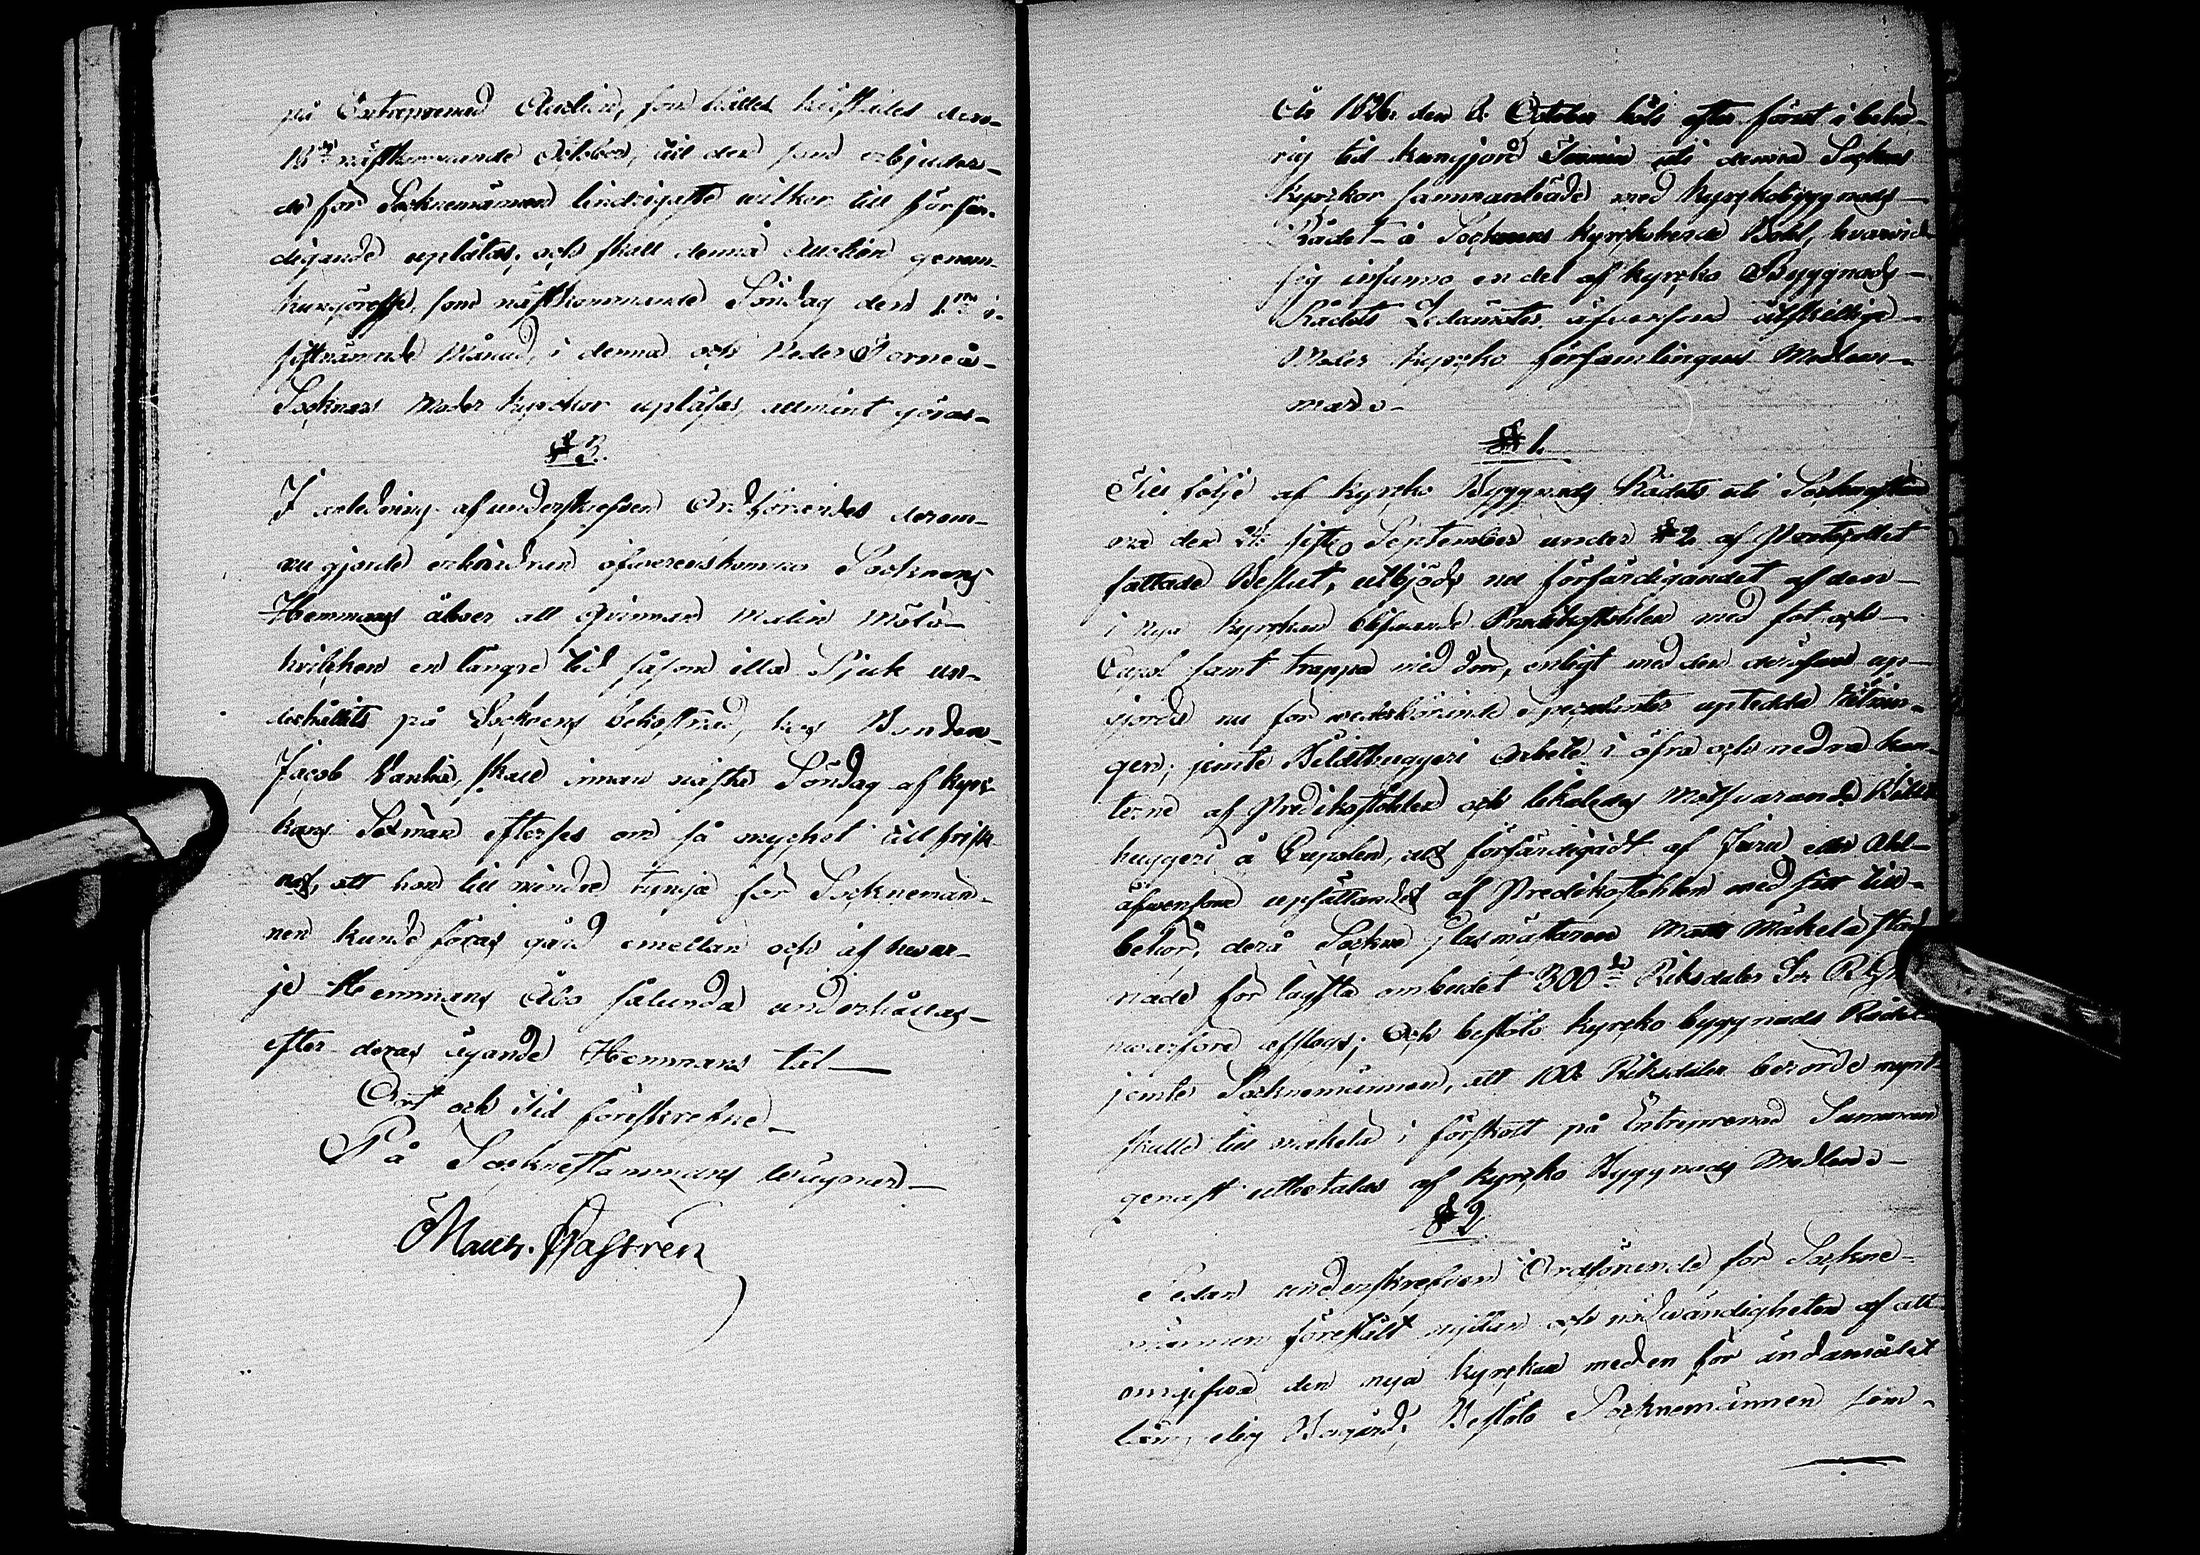 på Entreprenad Auction, som hålles härstädes den
18de nästkommande October, till den som erbjuder
de för Socknemännen lindrigaste wilkor till förfär-
digande uplåtas, och skall denna Auction genom
kungörelse, som nästkommande Söndag den 1sta i
sistnämnde Månad, i denna och Neder Torneå
Socknars Moder kyrckor upläsas, allmänt göras
§ 3.
I anledning af underskrefven Ordförandes derom
nu gjorde erhindran öfwerenskommo Socknens
Hemmans åboer att Qvinnan Malin
hvilcken en längre tid såsom illa Sjuk un-
derhållits på Socknens bekostnad, hos Bonden
Jacob skall innan nästa Söndag af kyrc-
kans Sexmän efterses om så mycket tillfrisk-
nat, att hon till mindre tunga för Socknemän-
nen kunde föras gård emellan och af hwar-
je Hemmans Åbo sålunda underhållas
efter deras ägande Hemmans tal
Ort och Tid förestrefne
På Socknestämmans wägnar
Matth. Castrén
År 1826 den 8 October höls efter förut i behö-
rig tid kungjord Termin uti denna Sockens
kyrckor sammanträde med kyrckobyggnads
Rådet å Socknens kyrckoherde Bohl, hvarvid
sig infunno en del af kyrcko Byggnads
Rådets Ledamöter, äfvensom åtskillige
Moder kyrcko församlingens Medlem-
mar.
§ 1.
Till följe af kyrcko Byggnads Rådets uti Sockenstäm-
ma den 24 siste September under § 2 af Protocollet
fattade Beslut, utbjöds nu förfärdigandet af den
i nya kyrckan blifwande Predikostohlen med fot och
Cupol samt trappa med dörr, enligt med den deröfwer up-
gjorde nu för wederbörande Speculanter uptedda Ritnin-
gen, jemte Bildthuggeri Arbete i öfra och nedra kan-
terne af Predikostohlen och likaledes motsvarande Bildt-
huggeri å Cupolen, allt förfärdigadt af Furu eller Ahl
äfwensom upsättandet af Predikostohlen med sitt till-
behör, derå Sockne Glasmästaren Matts Mäkelä stad-
nade för lägsta anbudet 300de Riksdaler
warföre afslogs; Och beslöto kyrcko byggnads Rådet
jemte Socknemännen, att 100de Riksdaler berörde mynt
skulle till Mäkelä i förskott på Entreprenad Summan
genast utbetalas af kyrcko Byggnads Medlen
§ 2
Sedan underskrefven Ordförande för Sockne-
männen förestält nyttan och nödwändigheten af att
omgifwa den nya kyrckan med en för ändamålet
lämpelig Bogård, Beslöto Socknemännen som-